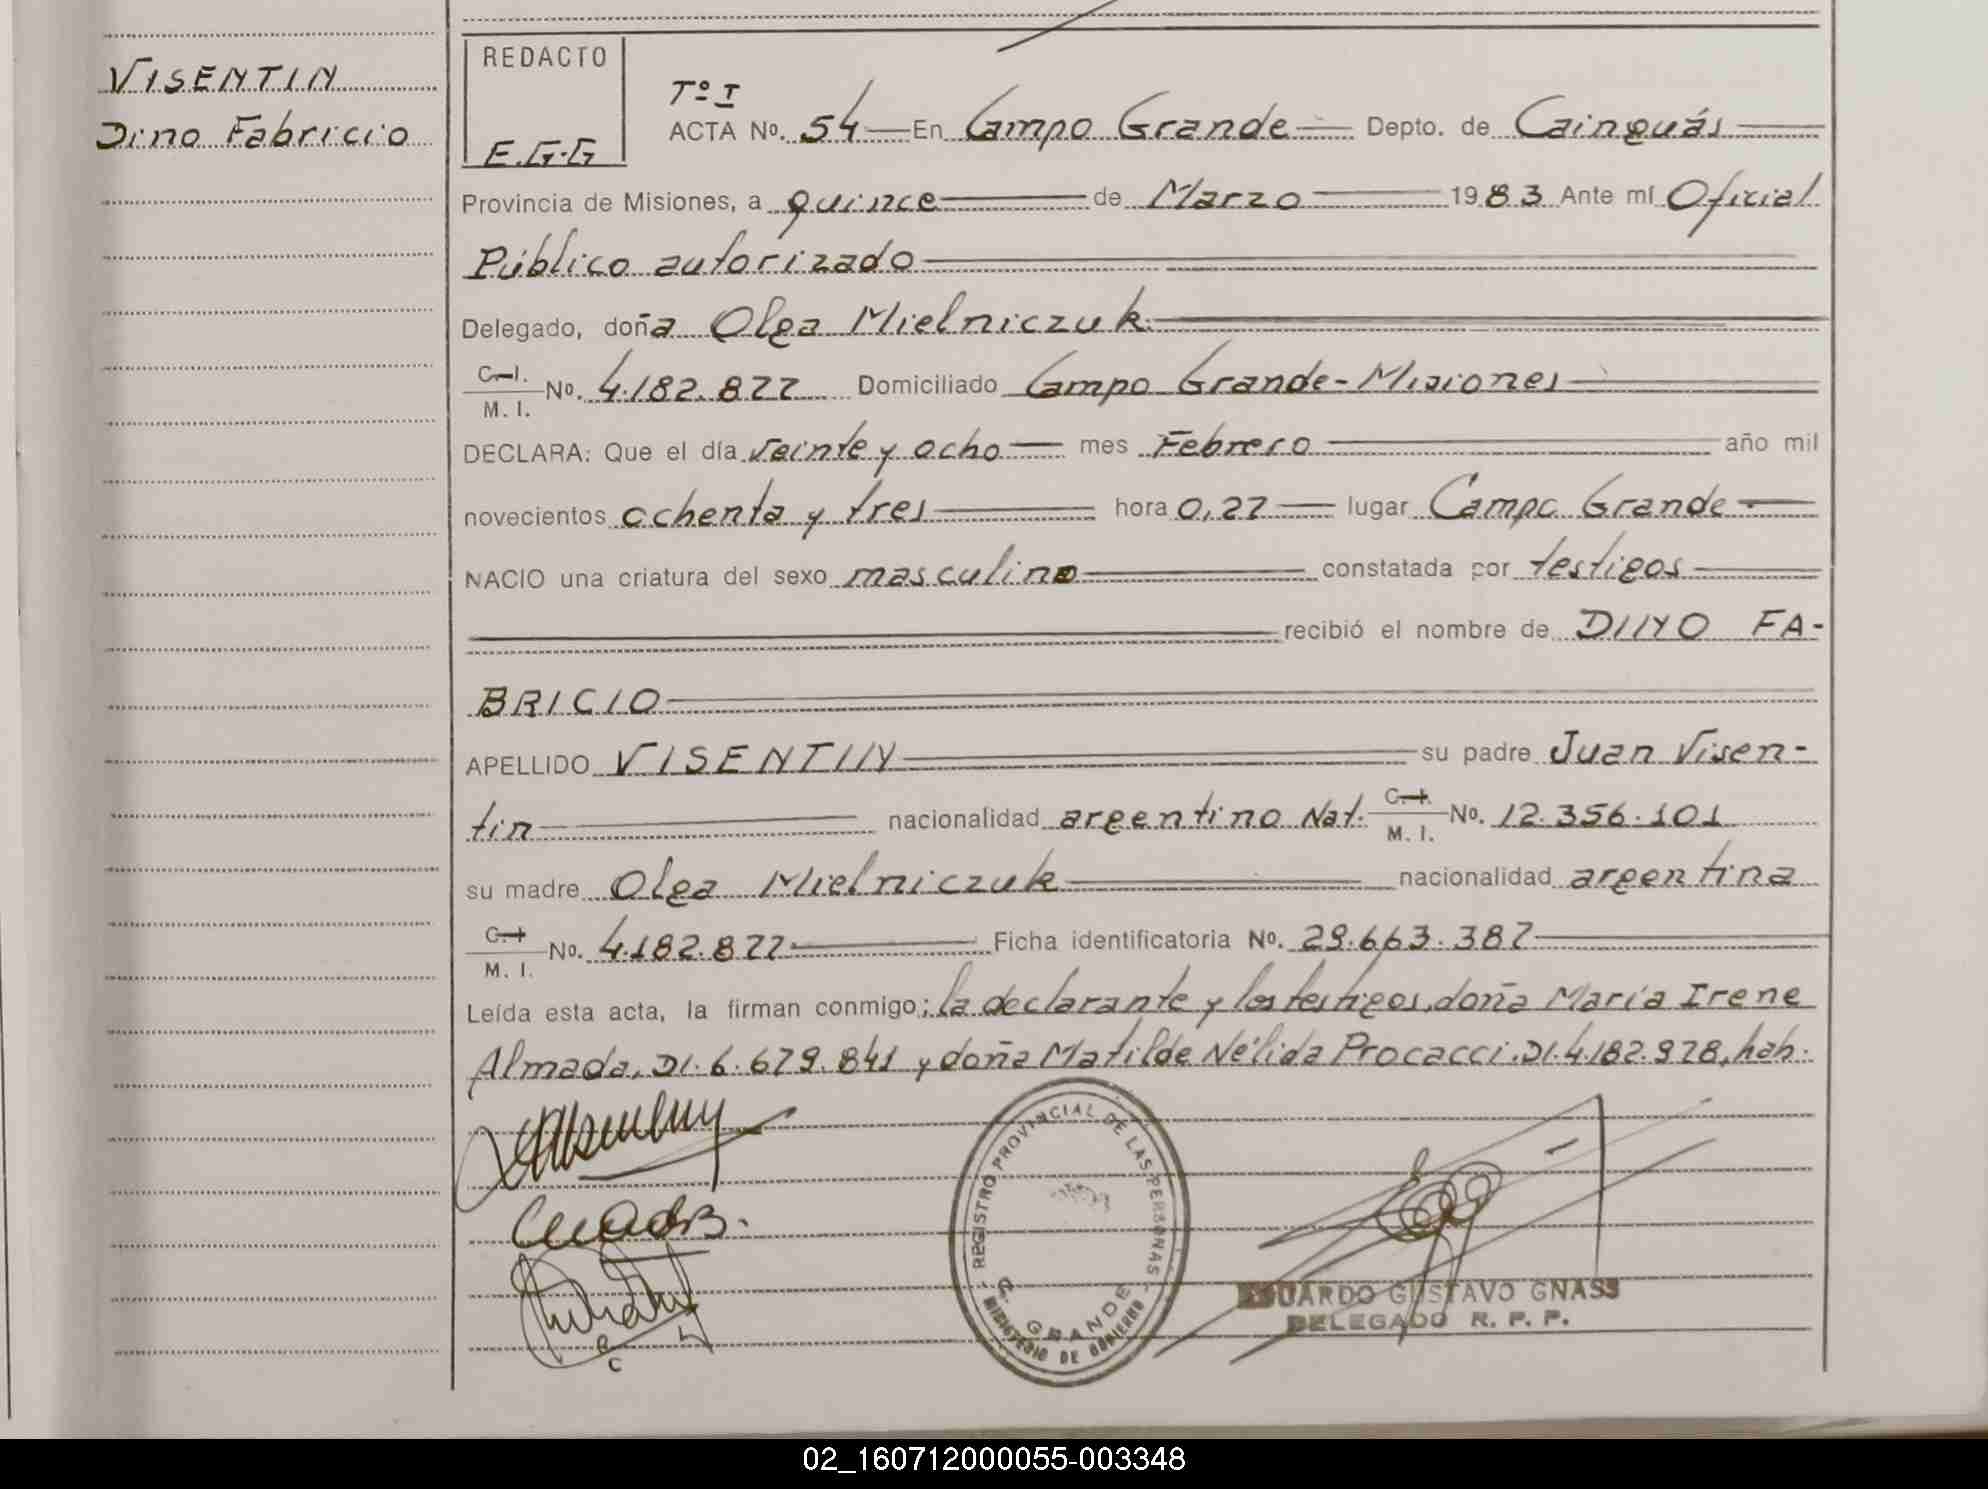 VISENTIN
Dino Fabricio
REDACTO
E.G.G
Tº I
ACTA Nº. 54 En Campo Grande Depto. de Cainguás
Provincia de Misiones, a quince de Marzo 1983 Ante mí Oficial
Público autorizado
Delegado, doña Olga Mielniczuk
C.I. M.I. Nº. 4.182.877 Domiciliado Campo Grande-Misiones
DECLARA: Que el día veinte y ocho mes Febrero año mil
novecientos ochenta y tres hora 0,27 lugar Campo Grande
NACIO una criatura del sexo masculino constatada por testigos
recibió el nombre de DINO FA-
BRICIO
APELLIDO VISENTIN su padre Juan Visen-
tin nacionalidad argentino Nat. C.I. M.I. Nº. 12.356.101
su madre Olga Mielniczuk nacionalidad argentina
C.I. M.I. Nº. 4.182.877 Ficha identificatoria Nº. 29.663.387
Leída esta acta, la firman conmigo; la declarante y los testigos, doña María Irene
Almada, DI. 6.679.841 y doña Matilde Nélida Procacci. DI. 4.182.978, hab.
REGISTRO PROVINCIAL DE LAS PERSONAS
C. GRANDE
MINISTERIO DE GOBIERNO
EDUARDO GUSTAVO GNASS
DELEGADO R. P. P.
02_160712000055-003348